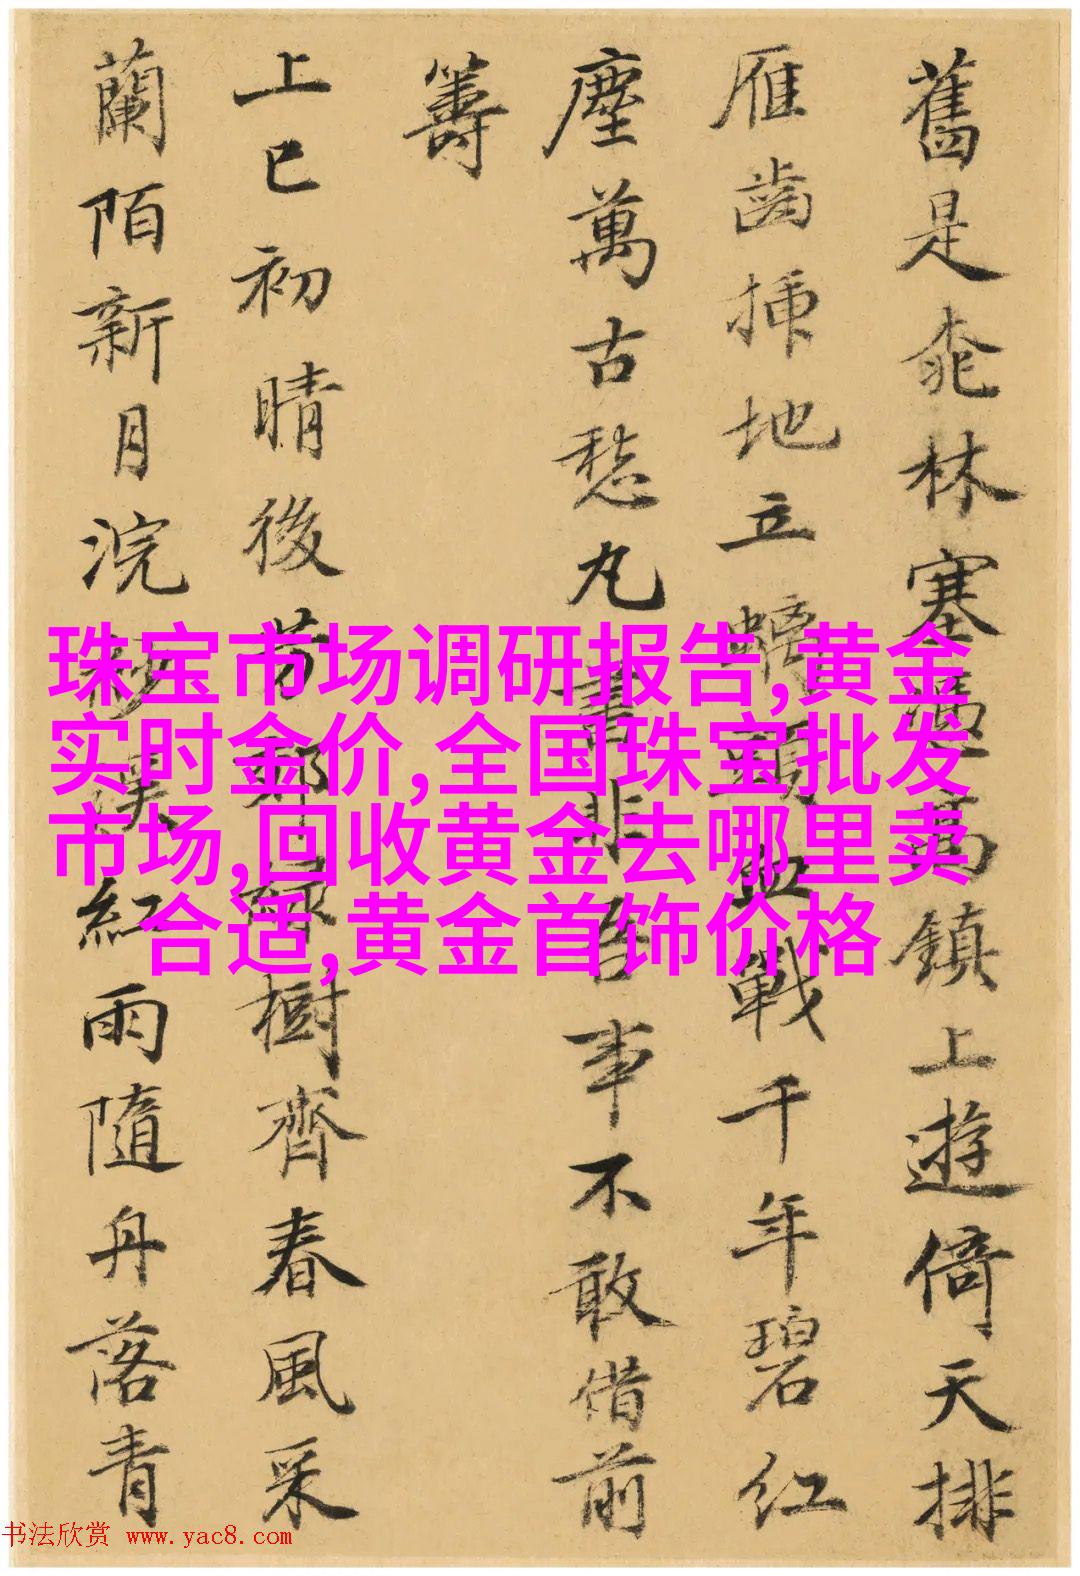 舊是桃林塞憑高鎮上遊倚天排
雁齒插地立螭頭血戰千年碧紅
塵萬古愁丸書非吾事不敢借前
籌
上巳初晴後芳郊綠樹齊春風采
蘭陌新月浣紗溪紅雨隨丹落青
珠宝市场调研报告,黄金
实时金价,全国珠宝批发
市场,回收黄金去哪里卖
合适,黄金首饰价格
书法欣赏 www.yac8.com